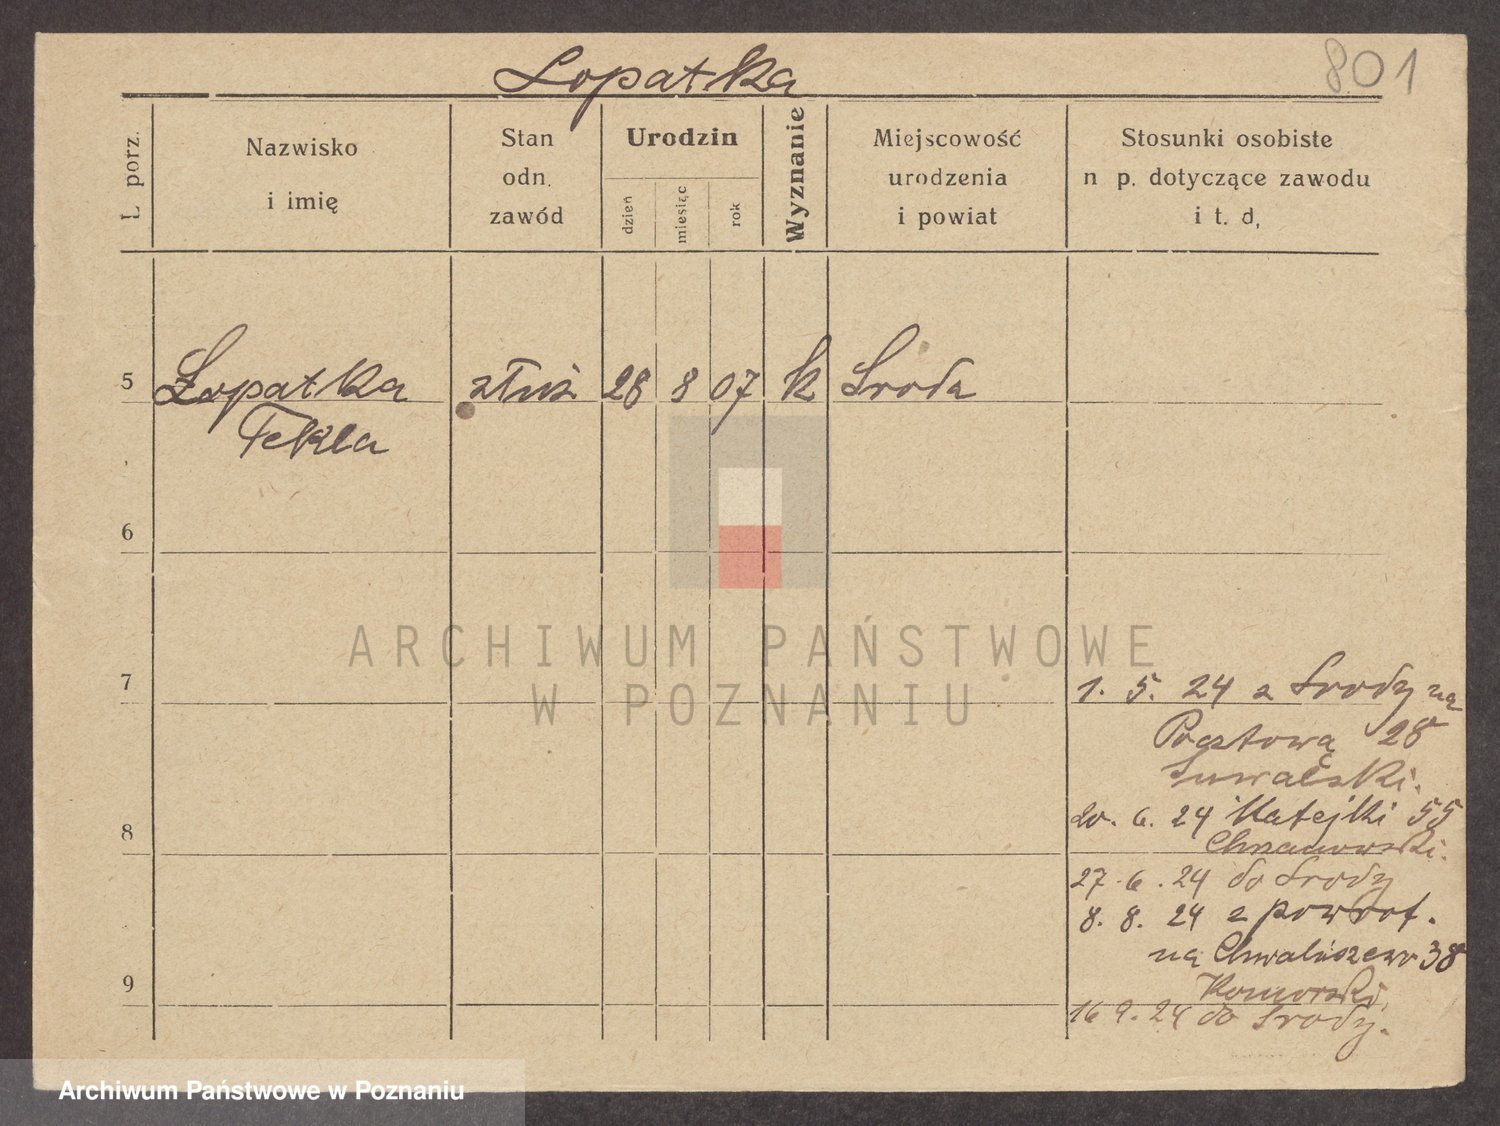 Łopatka
801
L. porz.
Nazwisko
i imię
Stan
odn.
zawód
Urodzin
dzień
miesiąc
rok
Wyznanie
Miejscowość
urodzenia
i powiat
Stosunki osobiste
n p. dotyczące zawodu
i t. d,
5 Łopatka służ 28 8 07 k Środa
Tekla
6
7
1. 5. 24 z Środy na
Pocztową 28
Suwalski.
8
20. 6. 24 Matejki 55
Chrzanowski.
27. 6. 24 do Środy
8. 8. 24 z powrot.
na Chwaliszewo 38
9
Komorski,
16 9. 24 do Środy.
ARCHIWUM PAŃSTWOWE
W POZNANIU
Archiwum Państwowe w Poznaniu